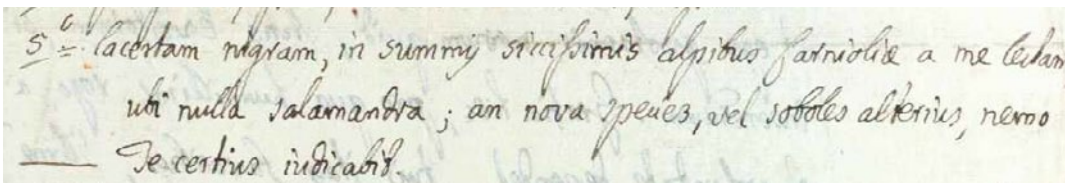 5c lacertam nigram, in summis siccissimis alpibus Carnioliæ a me lectam
ubi nulla salamandra; an nova species, vel soboles alterius, nemo
Te certius iudicabit.